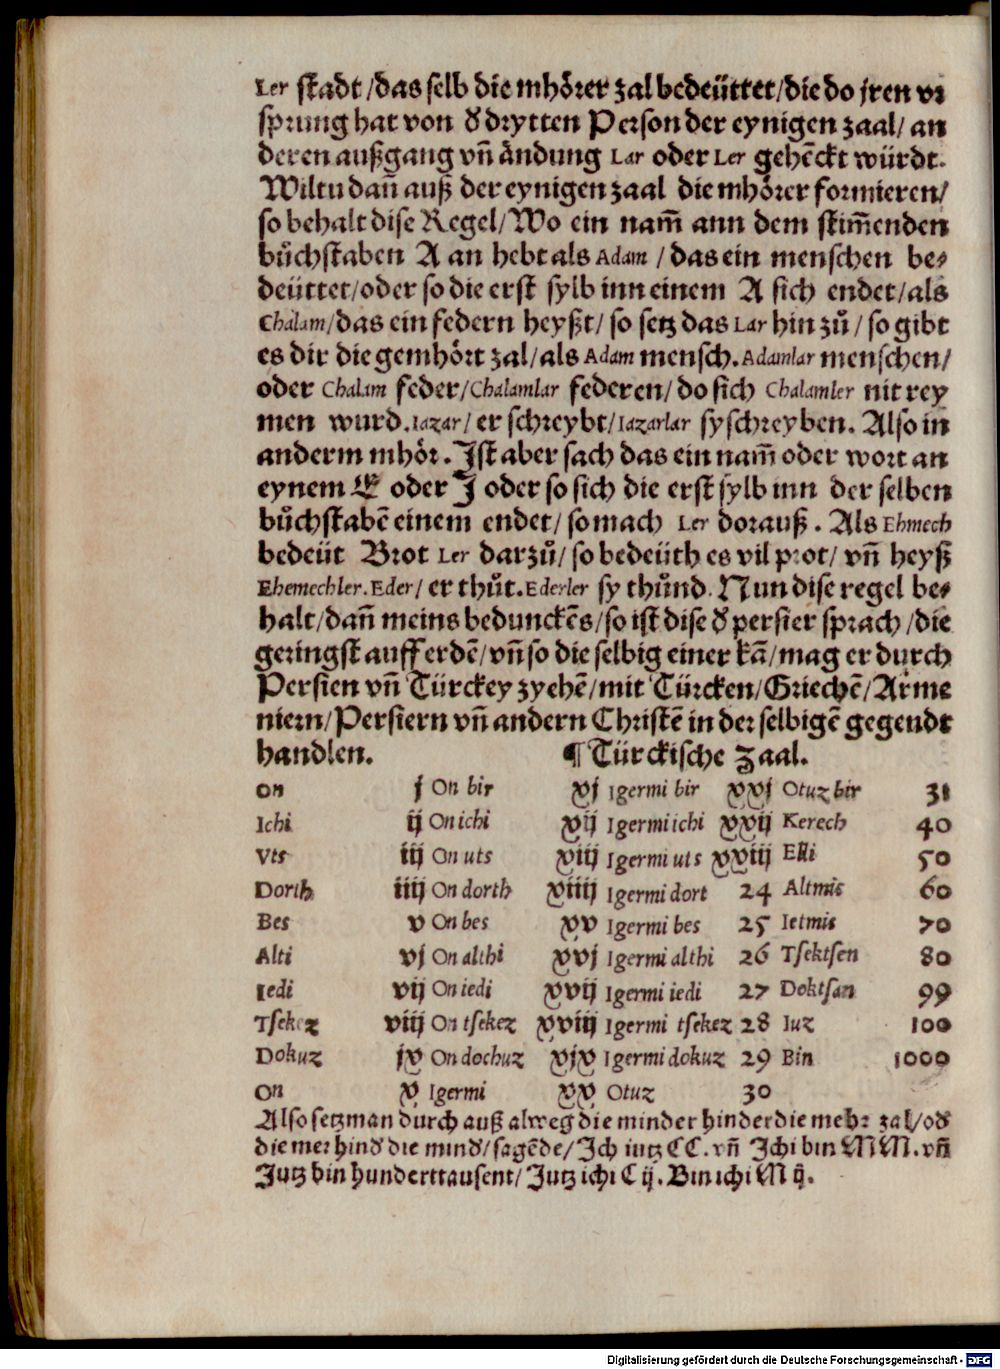 Ler stadt /das selb die mhörer zal bedeüttet/die do jren vr
sprung hat von d̓ drytten Person der eynigen zaal/ an
deren außgang vn̄ ändung Lar oder Ler gehēckt würdt.
Wiltu dañ auß der eynigen zaal die mhörer formieren/
so behalt dise Regel/Wo ein nam̄ ann dem stim̄enden
bůchstaben A an hebt als Adam / das ein menschen be⸗
deüttet/oder so die erst sylb inn einem A sich endet/als
Chalam/das ein federn heyßt/ so setz das Lar hin zů/ so gibt
es dir die gemhört zal/als Adam mensch. Adamlar menschen/
oder Chalam feder/Chalamlar federen/do sich Chalamler nit rey
men wurd. Iazar/ er schreybt/Iazarlar sy schreyben. Also in
anderm mhör. Ist aber sach das ein nam̄ oder wort an
eynem E oder J oder so sich die erst sylb inn der selben
bůchstabē einem endet/ so mach Ler dorauß. Als Ehmech
bedeüt Brot Ler darzů/ so bedeüth es vil prot/ vn̄ heyß
Ehemechler. Eder/ er thůt. Ederler sy thůnd. Nun dise regel be⸗
halt/dañ meins bedunckēs/so ist dise d̓ persier sprach /die
geringst auff erdē/vn̄ so die selbig einer kā/mag er durch
Persien vn̄ Türckey zyehē/mit Türcken/Griechē/Arme
niern/Persiern vn̄ andern Christē in der selbigē gegendt
handlen. ¶ Türckische Zaal.
On j On bir xj Igermi bir xxj Otuz bir 31
Ichi ij On ichi xij Igermi ichi xxij Kerech 40
Vts iij On uts xiij Igermi uts xxiij Elli 50
Dorth iiij On dorth xiiij Igermi dort 24 Altmis 60
Bes v On bes xv Igermi bes 25 Ietmis 70
Alti vj On althi xvj Igermi althi 26 Tsektsen 80
Iedi vij On iedi xvij Igermi iedi 27 Doktsan 99
Tsekez viij On tsekez xviij Igermi tsekez 28 Iuz 100
Dokuz ix On dochuz xjx Igermi dokuz 29 Bin 1000
On x Igermi xx Otuz 30
Also setzman durch auß alweg die minder hinder die mehr zal/od̓
die mer hind̓ die mind̓/sagēde/Ich iutz CC. vn̄ Ichi bin MM. vn̄
Jutz bin hunderttausent/ Jutz ichi C ij. Bin ichi M ij.
Digitalisierung gefördert durch die Deutsche Forschungsgemeinschaft - DFG